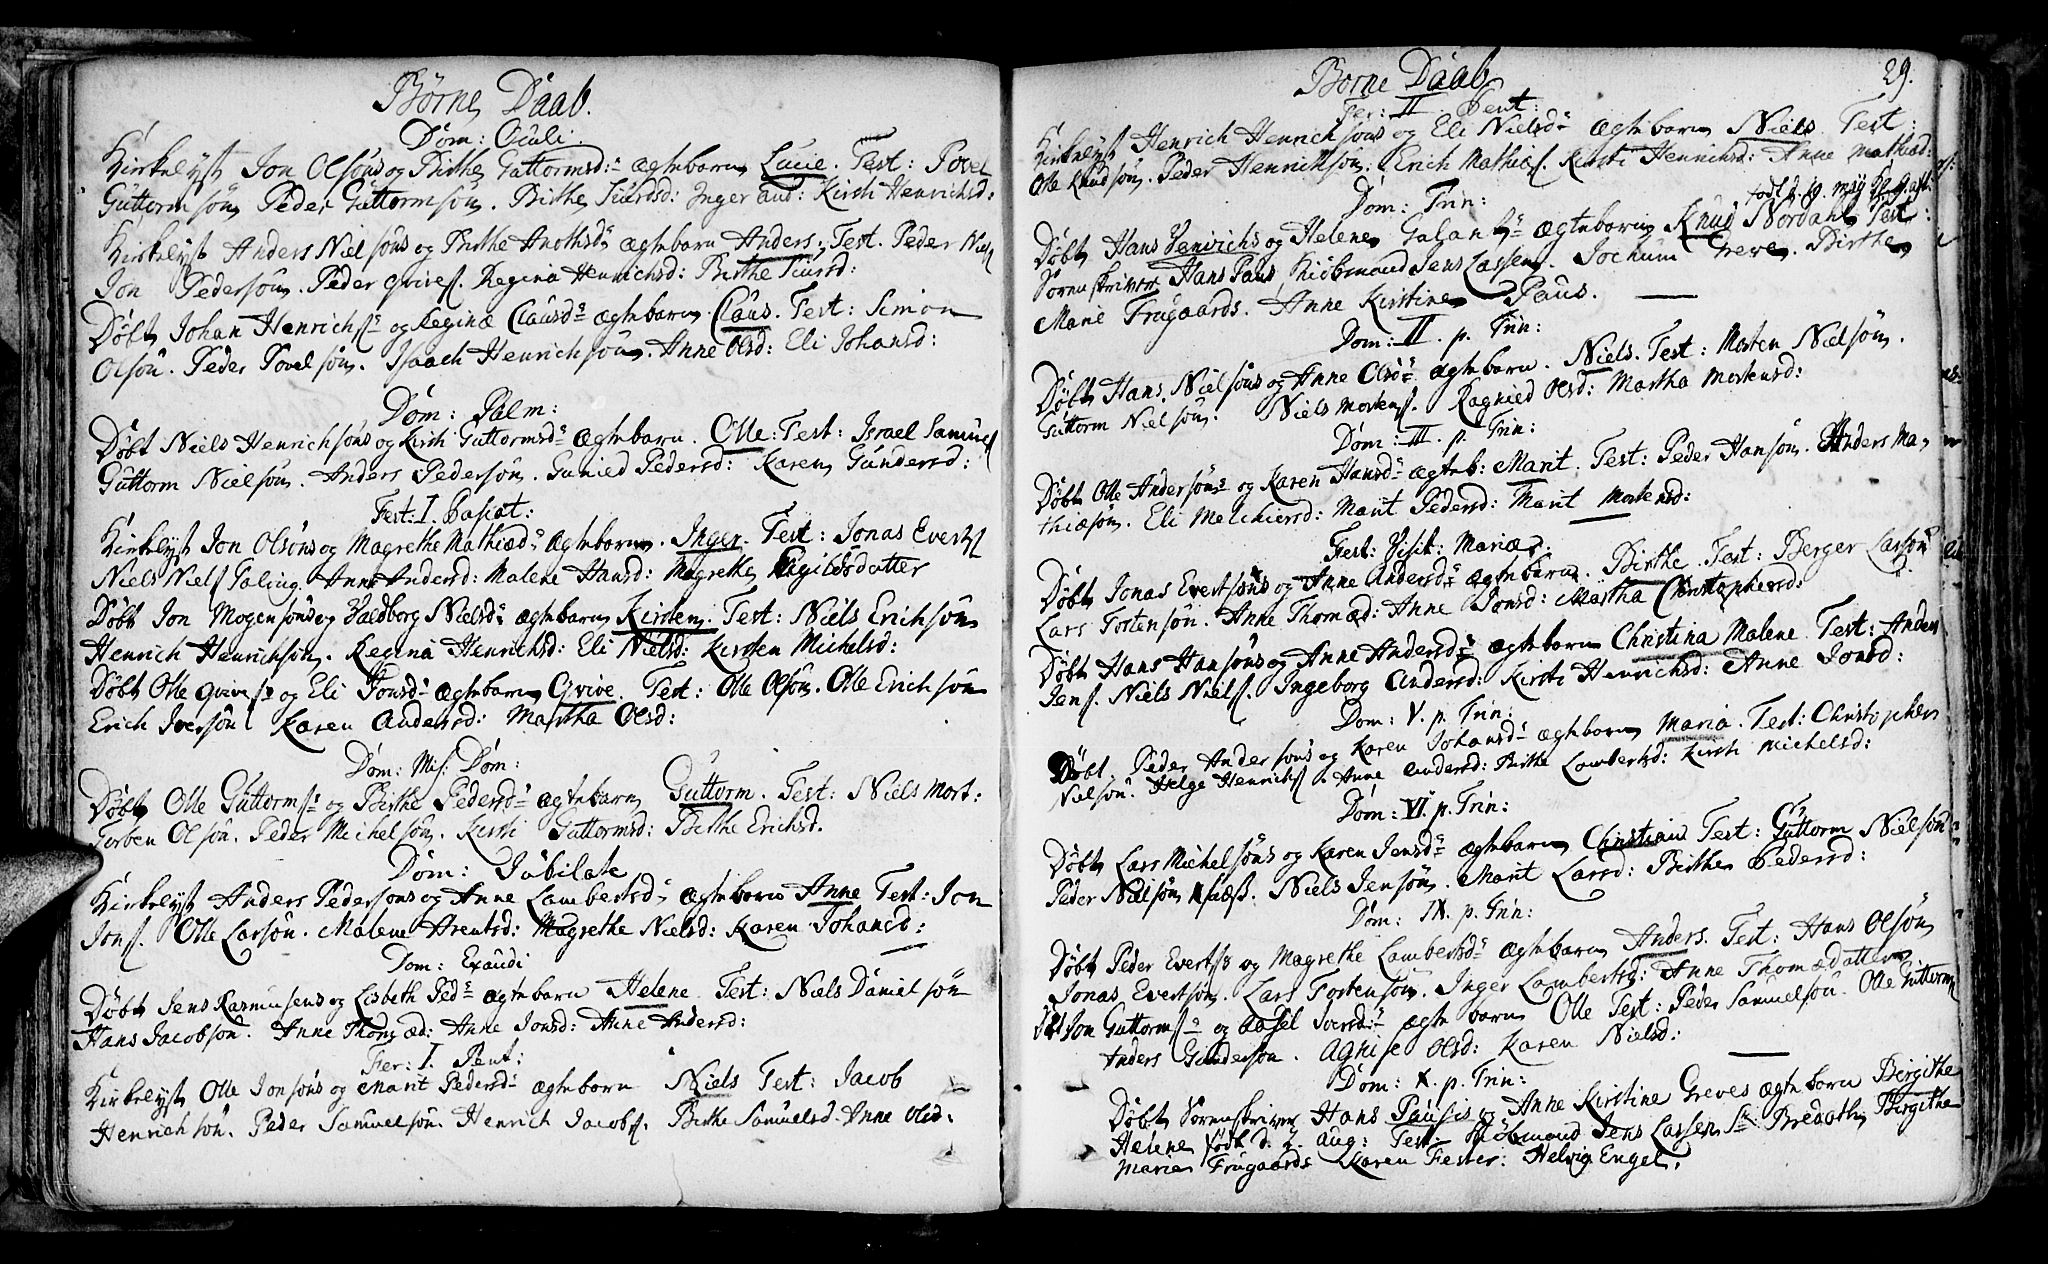 Børne Daab.
Dom: Oculi.
Kirkelyst Jon Olsøns og Birthe Guttormsd: ægtebarn Lucie. Test: Povel
Guttormsøn Peder Guttormsøn. Birthe Siursd: Inger And: Kirsti Henrichsd:
Kirkelyst Anders Nielsøns og Birthe Anothsd: ægtebarn Anders. Test. Peder Niels
Jon Pedersøn. Peder Gvives. Regina Henrichsd: Birthe Siursd:
Døbt Johan Henrichs: og Reginæ Clausd: ægtebarn Claus. Test: Simon
Olsøn. Peder Povelsøn. Isaach Henrichsøn. Anne Olsd: Eli Johansd:
Dom: Palm:
Døbt Niels Henrichsøns og Kirsti Guttormsd: ægtebarn. Olle. Test: Israel Samuels
Guttorm Nielsøn. Anders Pedersøn. Gunied Pedersd: Karen Gundersd:
Fest: I. Pascat:
Kirkelyst Jon Olsøns og Magrethe Mathiæd: ægtebarn. Inger. Test: Jonas Everts
Niels Niels Taling. Anne Andersd: Malene Hansd: Magrethe Egilsdatter
Døbt Jon Mogensøns og Valdborg Nielsd: ægtebarn Kirsten. Test: Niels Erichsøn
Henrich Henrichsøn. Regina Henrichsd: Eli Nielsd: Kirsten Michelsd:
Døbt Olle Gvives: og Eli Jonsd: ægtebarn Gvive. Test: Olle Olsøn. Olle Erichsøn
Erich Iversøn Karen Andersd: Martha Olsd:
Dom: Mis: Dom:
Døbt Olle Guttorms: og Birthe Pedersd: ægtebarn Guttorm. Test: Niels Mort:
Torben Olsøn. Peder Michelsøn. Kirsti Guttormsd: Birthe Erichsd.
Dom: Jubilate
Kirkelyst Anders Pedersøns og Anne Lambertsd: ægtebarn Anne Test: Jon
Jons. Olle Larsøn. Malene Arentsd: Magrethe Nielsd: Karen Johansd:
Dom: Exaudi
Døbt Jens Rasmusens og Lisbeth Ped: ægtebarn Helene Test: Niels Danielsøn
Hans Jacobsøn. Anne Thomæd: Anne Jonsd: Anne Andersd:
Fer: I. Pent:
Kirkelyst Olle Jonsøns og Marit Pedersd: ægtebarn Niels Test: Jacob
Henrichsøn. Peder Samuelsøn. Henrich Jacobs. Birthe Samuelsd. Anne Olsd:
29.
Børne Daab
Fer: II Pent:
Kirkelyst Henrich Henrichsøns og Eli Nielsd: ægtebarn Niels Test:
Olle Knudsøn. Peder Henrichsøn. Erich Mathiæs. Kirsti Henrichsd: Anne Mathiæd:
Dom: Trin: født d. 19. may
Døbt Hans Henrichs og Helene Galants: ægtebarn Knud Nordahl Test:
Sorenskriver Hans Paus Kiøbmand Jens Lassen. Jochum Greve. Birthe
Marie Frugaards. Anne Kirstine Paus.
Dom: II. p. Trin:
Døbt Hans Nielsøns og Anne Olsd: ægtebarn. Niels. Test: Morten Nielsøn.
Guttorm Nielsøn. Niels Mortens. Ragnied Olsd: Martha Mortensd:
Dom: III. p. Trin:
Døbt Olle Andersøns og Karen Hansd: ægteb: Marit. Test: Peder Hansøn. Anders Ma
thiæsøn. Eli Melchiersd: Marit Pedersd: Marit Mortensd:
Fest: Visit: Mariæ.
Døbt Jonas Evertsøns og Anne Andersd: ægtebarn. Birthe. Test: Berger Larsøn
Lars Tostensøn. Anne Thomæd: Anne Jonsd: Martha Christophersd:
Døbt Hans Hansøns og Anne Andersd: ægtebarn Christina Malene Test: Anders
Jens. Niels Niels. Ingeborg Andersd: Kirsti Henrichsd: Anne Jonsd:
Dom: V. p. Trin:
Døbt Peder Andersøns og Karen Johansd: ægtebarn Maria. Test: Christopher
Nielsøn. Helge Henrichs. Anne Andersd: Birthe Lambertsd: Kirsti Michelsd:
Dom: VI. p. Trin:
Døbt Lars Michelsøns og Karen Jensd: ægtebarn Christian Test: Guttorm Nielsøn
Peder Nielsøn Niels Jensøn. Marit Larsd: Birthe Pedersd:
Dom: IX. p. Trin:
Døbt Peder Everts: og Magrethe Lambertsd: ægtebarn Anders. Test: Hans Olsøn
Jonas Evertsøn. Lars Tostensøn. Inger Lambertsd: Anne Thomædatter
Døbt Jon Guttorms: og Assel Iversd: ægtebarn Olle Test: Peder Samuelsøn. Olle Guttorms
Anders Gundersøn. Aghise Olsd: Karen Nielsd:
Dom: X. p. Trin:
Døbt Sorenskriver Hans Pausis og Anne Kirstine Greves ægtebarn Birgithe
Helene født d. 2. aug: Test: Kiøbmand Jens Lassen Sr: Bredath Birgithe
Maria Frugaards Karen Fester: Helvig Engel.